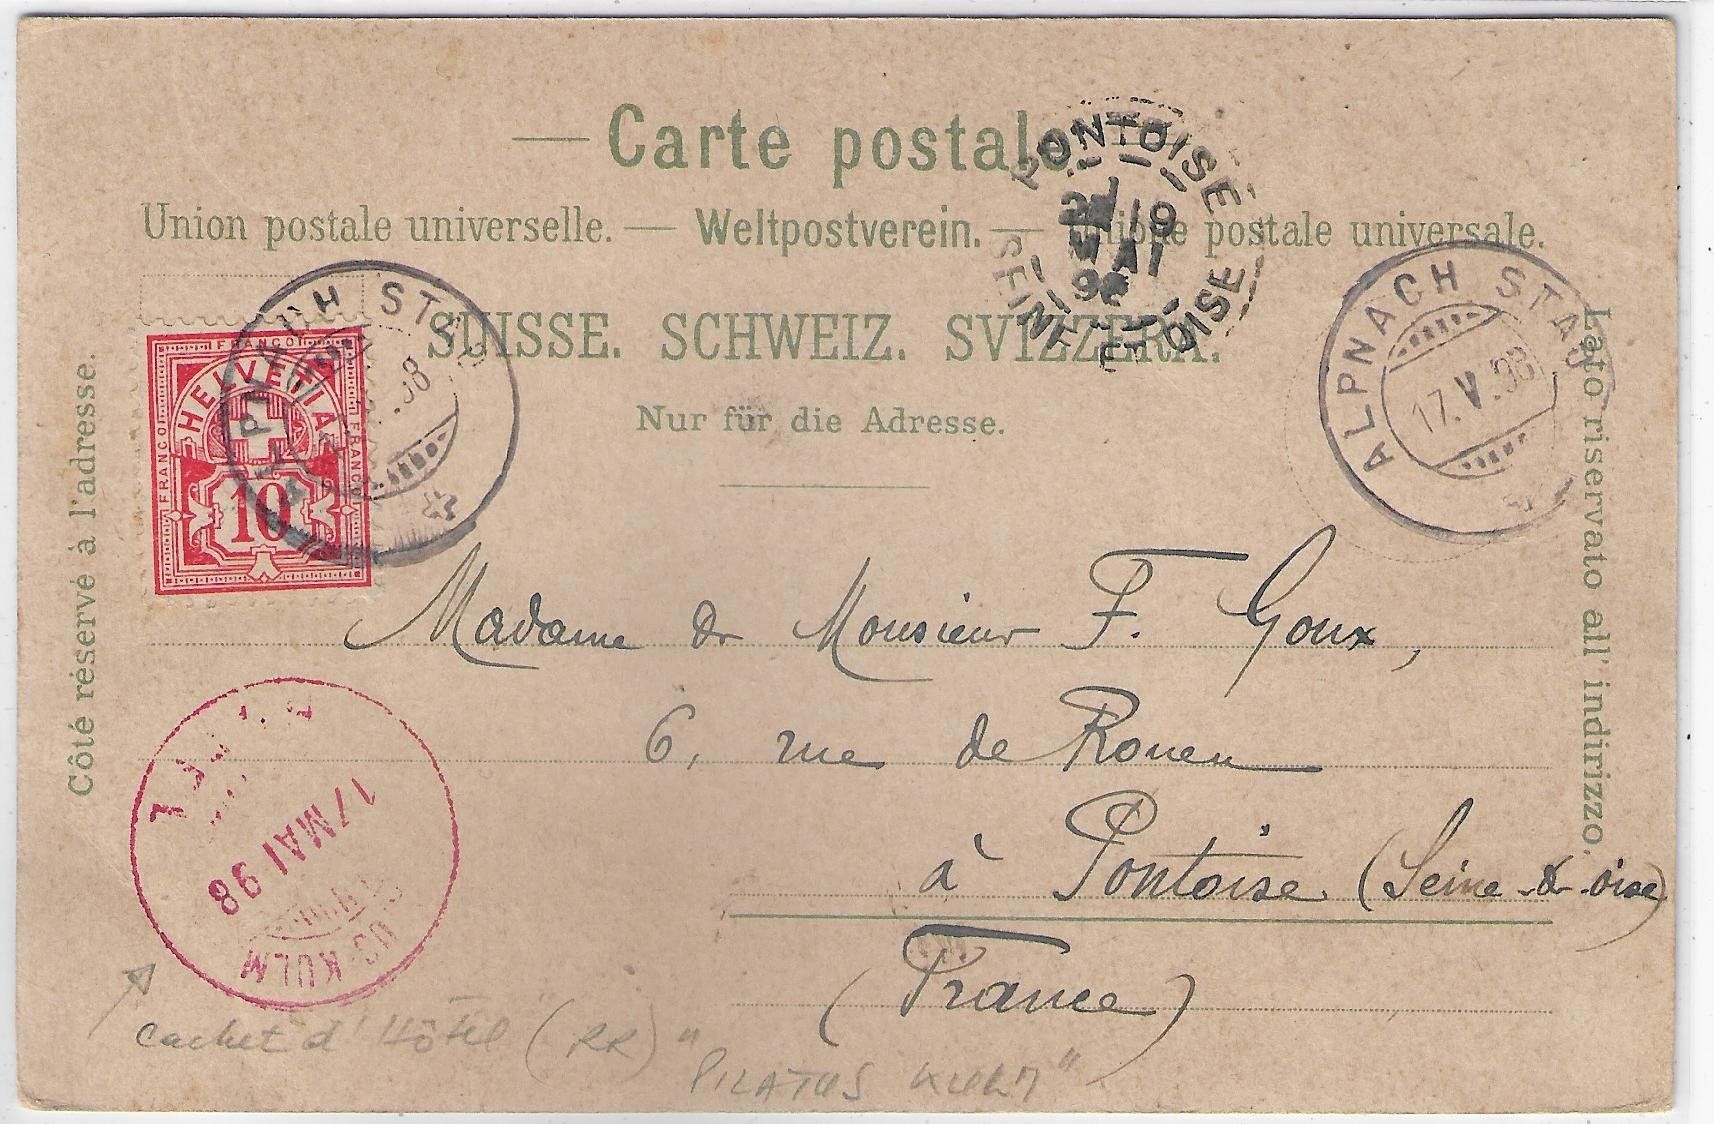 Carte postale
Union postale universelle. — Weltpostverein. — Unione postale universale.
SUISSE. SCHWEIZ. SVIZZERA.
Nur für die Adresse.
Côté réservé à l'adresse.
Lato riservato all' indirizzo.
PONTOISE
19
MAI
SEINE ET OISE
ALPNACH STAD
17.V.98
ALPNACH STAD
98
FRANCO
HELVETIA
FRANCO
FRANCO
10
Madame & Monsieur F. Goux,
6, rue de Rouen
à Pontoise (Seine-&-oise)
(France)
17 MAI 98
US-KULM
cachet d'Hôtel (RR) "PILATUS KULM"